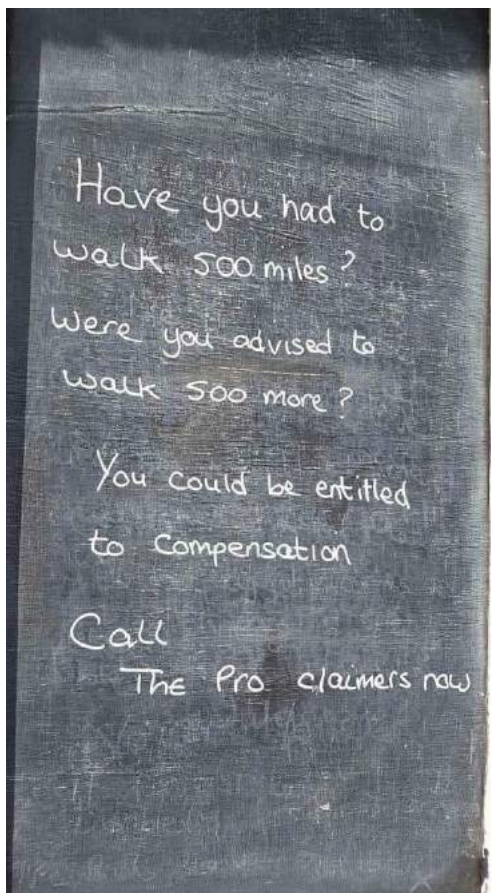 Have you had to
walk 500 miles?
Were you advised to
walk 500 more?
You could be entitled
to Compensation
Call
The Pro claimers now